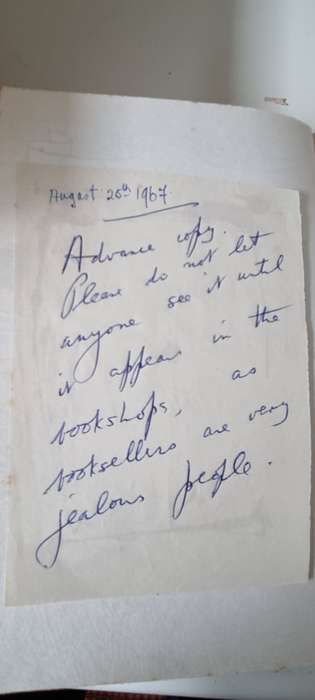 August 26th 1967.
Advance copy.
Please do not let
anyone see it until
it appears in the
bookshops, as
booksellers are very
jealous people.